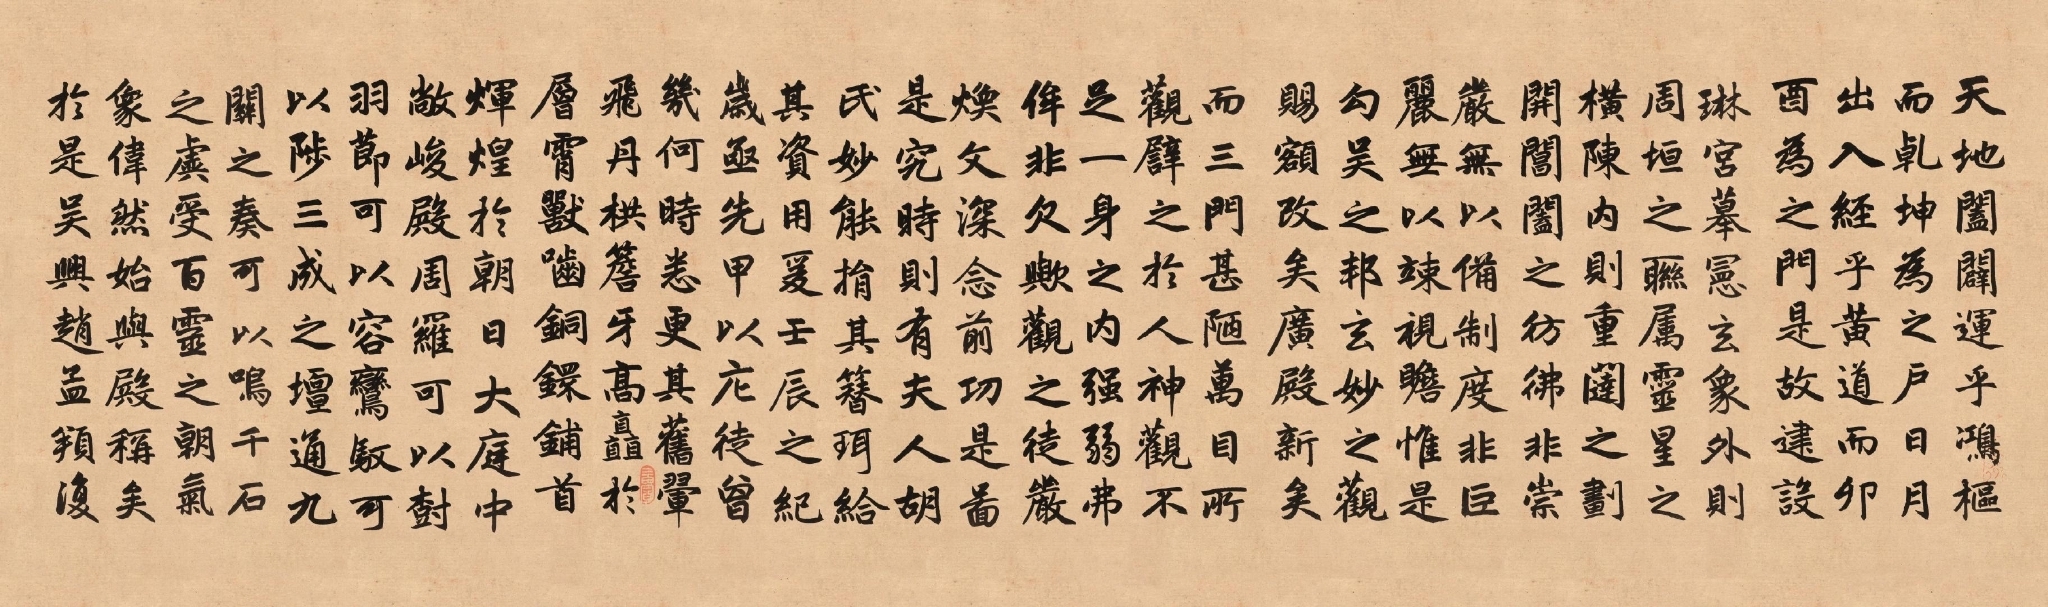 天地闔闢運乎鴻樞
而乹坤為之户日月
出入経乎黄道而卯
酉為之門是故建設
琳宮摹憲玄象外則
周垣之聯属靈星之
横陳内則重闥之劃
開閶闔之彷彿非崇
嚴無以備制度非巨
麗無以竦視瞻惟是
勾吴之邦玄妙之觀
賜額改矣廣殿新矣
而三門甚陋萬目所
觀譬之於人神觀不
足一身之内强弱弗
侔非欠歟觀之徒嚴
焕文深念前功是啚
是究時則有夫人胡
氏妙能捐其簪珥給
其資用爰壬辰之紀
歳亟先甲以庀徒曾
幾何時悉更其舊翬
飛丹栱簷牙高矗於
層霄獸嚙銅鐶鋪首
煇煌於朝日大庭中
敞峻殿周羅可以樹
羽莭可以容鸞馭可
以陟三成之壇通九
關之奏可以鳴千石
之虡受百靈之朝氣
象偉然始與殿稱矣
於是吴興趙孟頫復